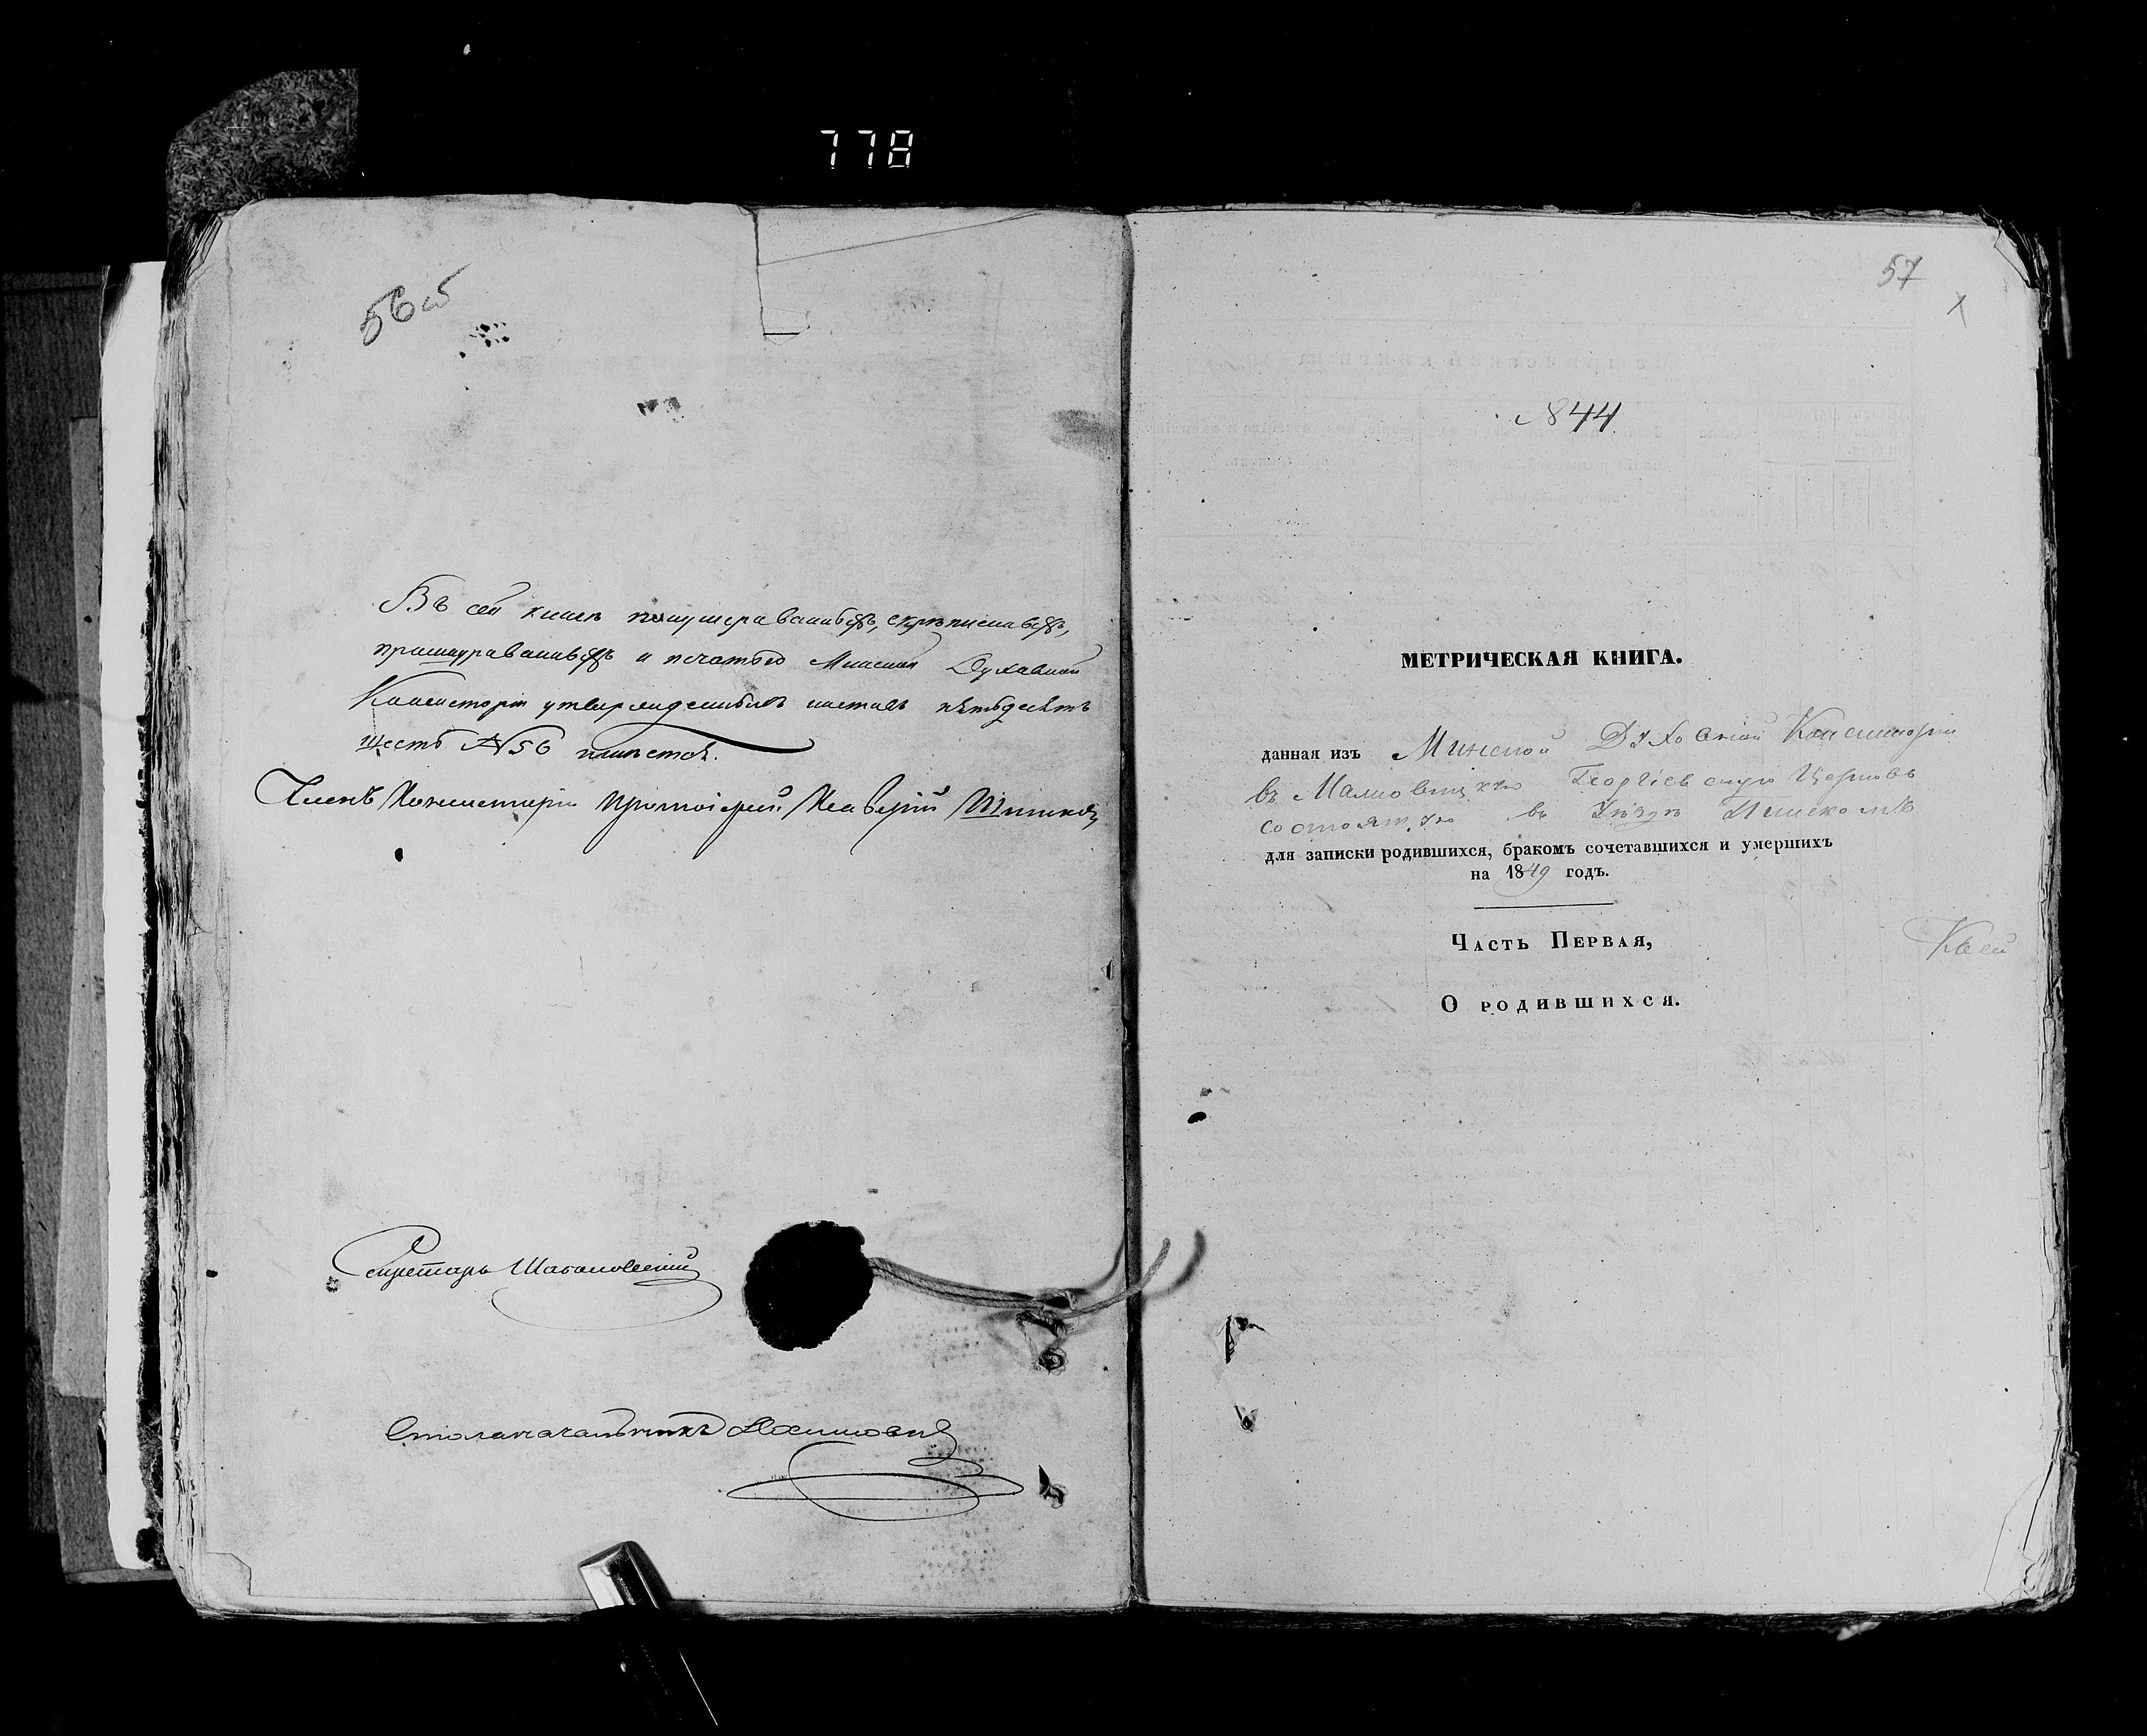 778
56об
Въ сей книгѣ пошнурованныхъ, скрѣпленныхъ,
пронумерованныхъ и печатью Минской Духовной
Консисторіи утвержденныхъ листовъ пятьдесятъ
шесть №56
Членъ Консисторіи Протоіерей
Секретарь
Столоначальникъ
57
№ 44
МЕТРИЧЕСКАЯ КНИГА.
данная изъ Минской Духовной Консисторіи
въ Георгіевскую Церковь
состоящую въ Уѣздѣ Пинскомъ
для записки родившихся, бракомъ сочетавшихся и умершихъ
на 1849 годъ.
Часть Первая,
Къ сей
О родившихся.